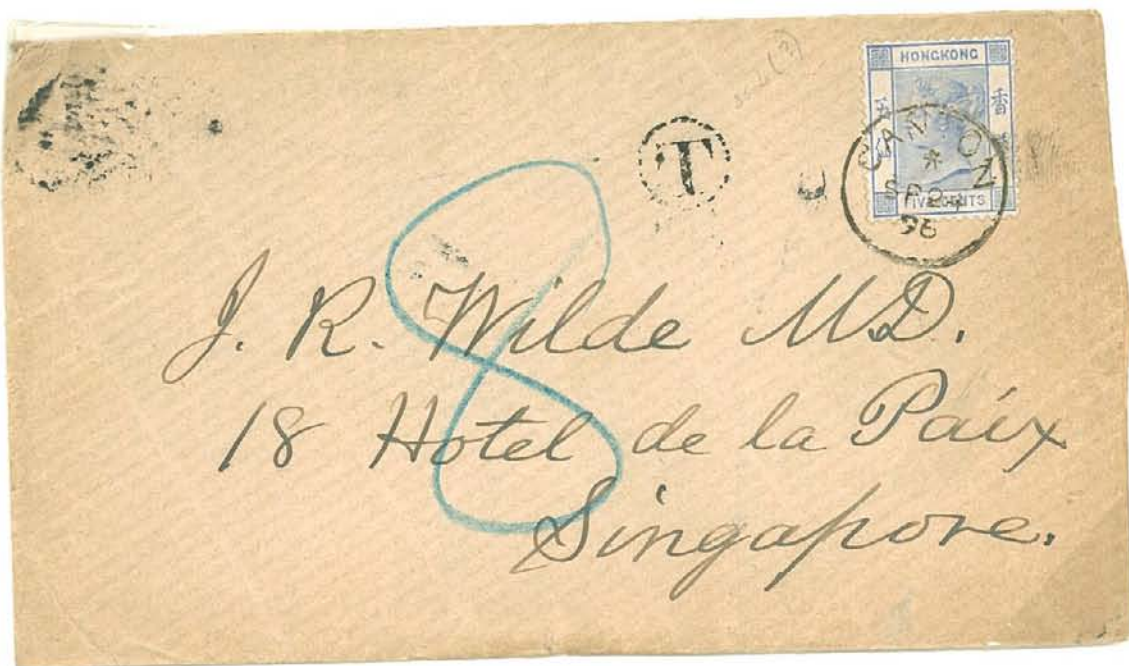 HONGKONG
香
五
FIVE CENTS
CANTON
SP 2
96
T
8
J. R. Wilde M.D.
18 Hotel de la Paix
Singapore.